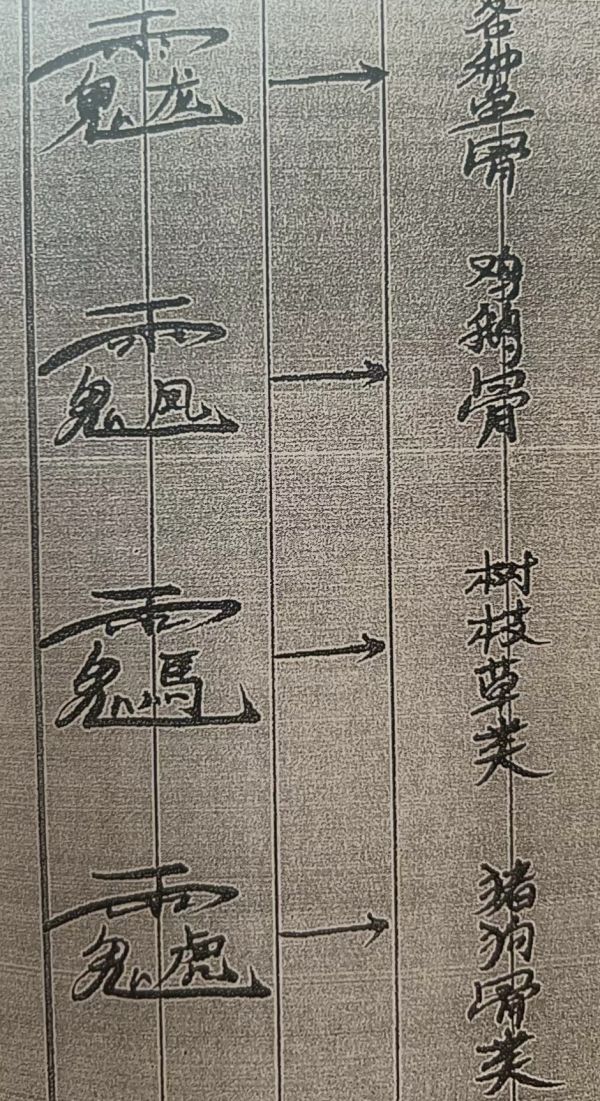 雨鬼龙 → 各种鱼骨
雨鬼凤 → 鸡鹅骨
雨鬼馬 → 树枝草类
雨鬼虎 → 猪狗骨类